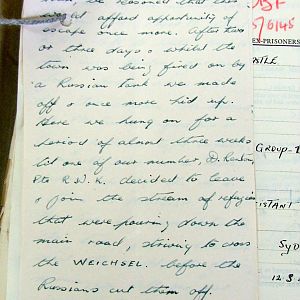 we reasoned that this
might afford opportunity of
escape once more. After two
or three days & whilst the
town was being fired on by
a Russian tank we made
off & once more hid up.
Here we hung on for a
period of almost three weeks
til one of our number,
Pte R.W.K. decided to leave
& join the stream of refugees
that were pouring down the
main road, striving to cross
the WEICHSEL. before the
Russians cut them off.
EX-PRISONERS
GROUP-
SYD